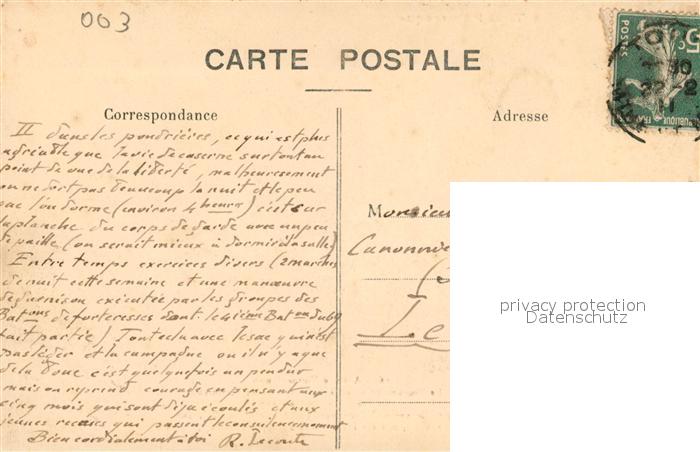 003
CARTE POSTALE
Correspondance
Adresse
II dans les poudrières, ce qui est plus
agréable que la vie de caserne surtout au
point de vue de la liberté, malheureusement
on ne dort pas beaucoup la nuit et le peu
que l'on dorme (environ 4 heures) c'est sur
la planche du corps de garde avec un peu
de paille (on serait mieux à dormir à la salle)
Entre temps exercices divers (2 marches
de nuit cette semaine et une manœuvre
de garnison exécutée par les groupes des
Bat ons de forteresses dont le 4ième Bat on du 69
fait partie) Tout cela avec le sac qui n'est
pas léger et la campagne où il n'y a que
de la boue c'est quelquefois un peu dur
mais on reprend courage en pensant aux
cinq mois qui sont déjà écoulés et aux
jeunes recrues qui passent le conseil en ce moment
Bien cordialement à toi R. Lecomte
Monsieur
Canonnie
Le
5c
POSTES
22 2
11
privacy protection
Datenschutz